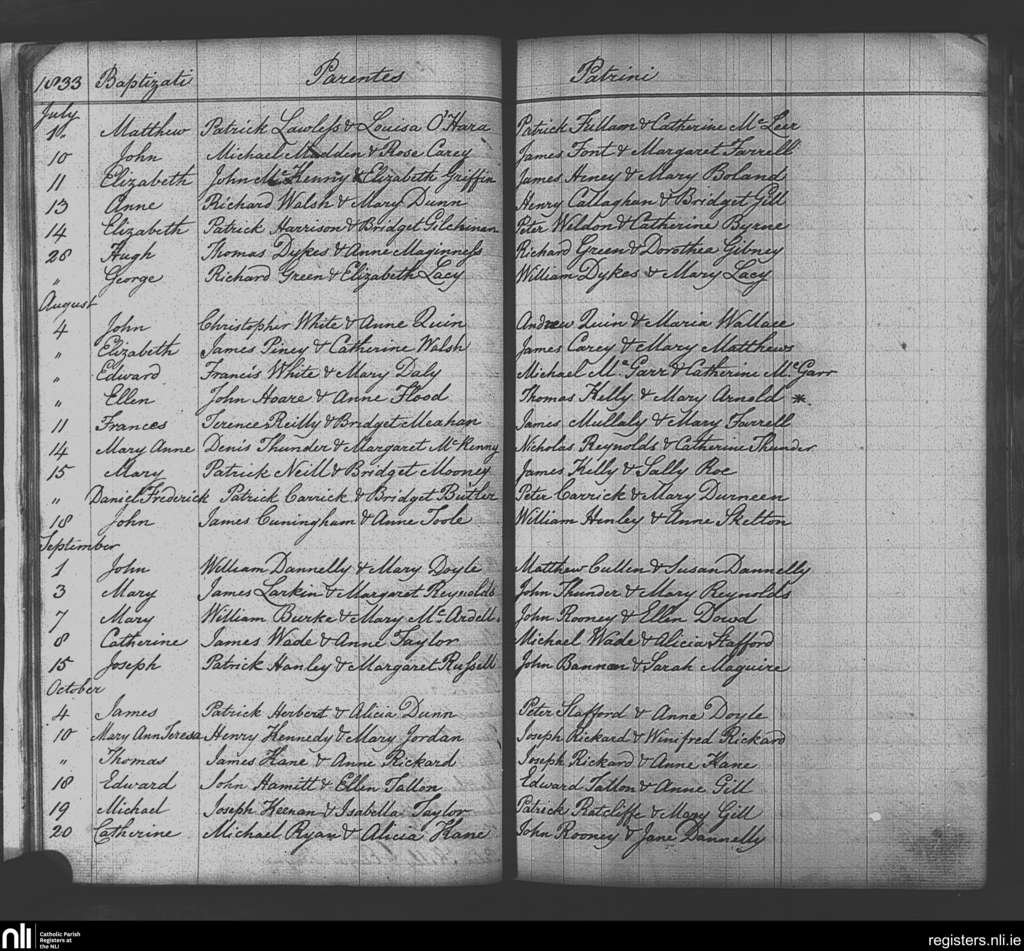 1833 Baptizati Parentes Patrini
July
Matthew Patrick Lawless & Louisa O'Hara Patrick Fullam & Catherine Mc Leer
10 John Michael Madden & Rose Carey James Font & Margaret Farrell
11 Elizabeth John Mc Kenny & Elizabeth Griffin James Heney & Mary Boland
13 Anne Richard Walsh & Mary Dunn Henry Callaghan & Bridget Gill
14 Elizabeth Patrick Harrison & Bridget Gilchinan Peter Weldon & Catherine Byrne
28 Hugh Thomas Dykes & Anne Maginness Richard Green & Dorothea Gibney
" George Richard Green & Elizabeth Lacy William Dykes & Mary Lacy
August
4 John Christopher White & Anne Quin Andrew Quin & Maria Wallace
" Elizabeth James Piney & Catherine Walsh James Carey & Mary Matthews
" Edward Francis White & Mary Daly Michael Mc Garr & Catherine Mc Garr
" Ellen John Hoare & Anne Flood Thomas Kelly & Mary Arnold *
11 Frances Terence Reilly & Bridget Meahan James Mullaly & Mary Farrell
14 Mary Anne Denis Thunder & Margaret Mc Kenny Nicholas Reynolds & Catherine Thunder
15 Mary Patrick Neill & Bridget Mooney James Kelly & Sally Roe
" Daniel Frederick Patrick Carrick & Bridget Butler Peter Carrick & Mary Durneen
18 John James Cuningham & Anne Toole William Henley & Anne Skelton
September
1 John William Dannelly & Mary Doyle Matthew Cullen & Susan Dannelly
3 Mary James Larkin & Margaret Reynolds John Thunder & Mary Reynolds
7 Mary William Burke & Mary Mc Ardell John Rooney & Ellen Dowd
8 Catherine James Wade & Anne Taylor Michael Wade & Alicia Stafford
15 Joseph Patrick Hanley & Margaret Russell John Bannan & Sarah Maguire
October
4 James Patrick Herbert & Alicia Dunn Peter Stafford & Anne Doyle
10 Mary Ann Teresa Henry Kennedy & Mary Jordan Joseph Rickard & Winifred Rickard
" Thomas James Kane & Anne Rickard Joseph Rickard & Anne Kane
18 Edward John Hamitt & Ellen Tallon Edward Tallon & Anne Gill
19 Michael Joseph Keenan & Isabella Taylor Patrick Ratcliffe & Mary Gill
20 Catherine Michael Ryan & Alicia Kane John Rooney & Jane Dannelly
nli Catholic Parish
Registers at
the NLI
registers.nli.ie